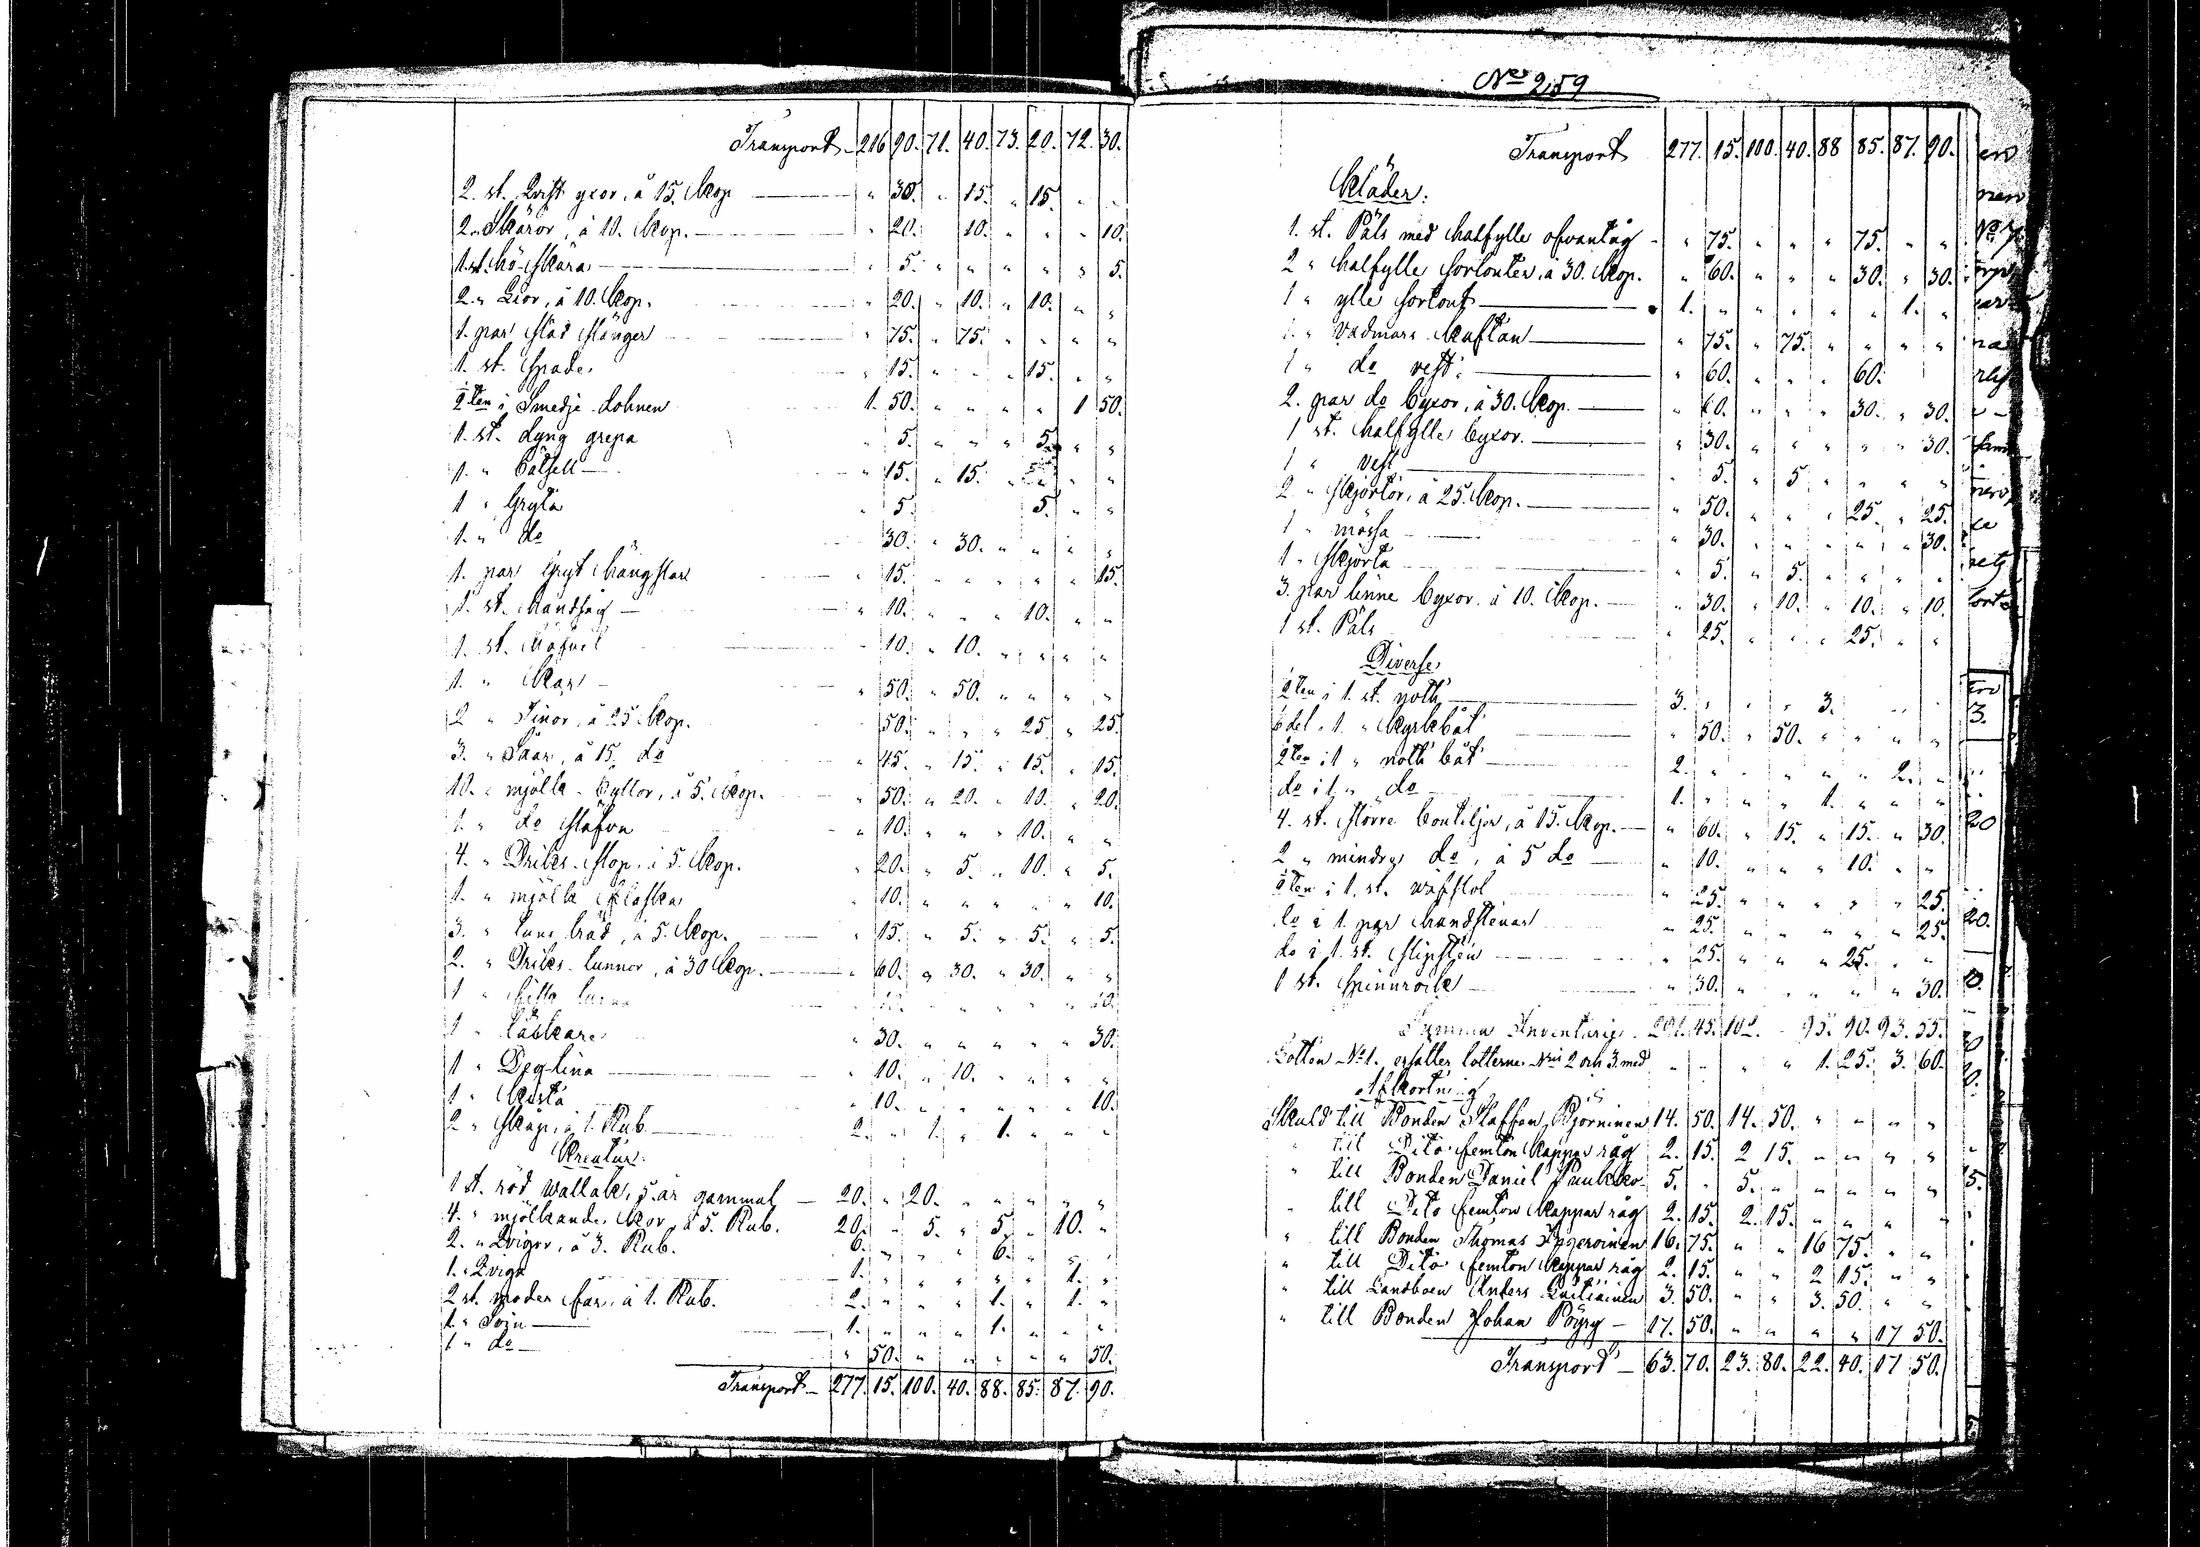 Transport 216 90. 71. 40. 73. 20. 72. 30.
2. st. Qvist yxor, à 15. Kop. " 30. " 15. " 15. " "
2. " Skäror, à 10. Kop. " 20. 10. " " " 10.
1. st. hö skära " 5. " " " " " 5.
2. " Liar, à 10. Kop. " 20. " 10. " 10. " "
1. par Släd stänger " 75. " 75. " " " "
1. st. Spade " 15. " " " 15. " "
2ten i Smedje 1. 50. " " " " 1 50.
1. st. dyng grepa " 5. " " " 5. " "
1. " Båtsell " 15. " 15. " " "
1 " Gryta " 5. 5. " "
1. " do 30. " 30. " " " "
1. par Gryt hängslor " 15. " " " " " 15.
1. st. handsåg " 10. " " " 10. " "
1. st. 10. " 10. " " " "
1. " Kar " 50. " 50. " " " "
2 " Tinor, à 25 Kop. 50. " " " 25 " 25.
3. " Såar, à 15. do " 45. " 15. " 15. " 15.
10. " mjölk-Byttor, à 5. Kop. " 50. " 20. " 10. " 20.
1. " do Stäfva " 10. " " " 10. " "
4. " Driks-Stop, à 5. Kop. " 20. " 5. " 10. " 5.
1. " mjölk flaska " 10. " " " " " 10.
3. " bräd, à 5. Kop. " 15. " 5. " 5. " 5.
2. " Driks-tunnor, à 30 Kop. " 60. " 30. " 30. " "
1 " " " 10.
1 " 30. " " " " " 30.
1 " Degtina 10. " 10. " " " "
1 " Kista " 10. " " " " " 10.
2 " Skåp, à 1. Rub. 2. " 1. " 1. " " "
Kreatur:
1 st. röd Wallak, 5. år gammal 20. " 20. " " " " "
4. " mjölkande Kor, à 5. Rub. 20. " 5. " 5. " 10. "
2. " Qvigor, à 3. Rub. 6. " " " 6. " " "
1. " Qviga 1. " " " " " 1. "
2 st. moder får, à 1. Rub. 2. " " " 1. " 1. "
1. " Soju 1. " " " 1. " " "
1 " do " 50. " " " " " 50.
Transport 277. 15. 100. 40. 88. 85. 87. 90.
No 259
Transport 277. 15. 100. 40. 88 85. 87. 90.
Kläder:
1. st. Päls med halfylle ofvantyg " 75. " " " 75. " "
2 " halfylle Sortouter, à 30. Kop. " 60. " " " 30. " 30.
1 " ylle Sortout 1. " " " " " 1. "
1. " Vadmars Kaftan " 75. " 75. " " " "
1 " do vest " 60. " " " 60.
2. par do byxor, à 30. Kop. " 60. " " " 30. " 30.
1 st. halfylle byxor. " 30. " " " " " 30.
1 " vest " 5. " 5 " " " "
2 " Skjortor, à 25. Kop. " 50. " " " 25. " 25.
1 " mössa " 30. " " " " " 30.
1 " Skjorta " 5. " 5. " " " "
3. par linne byxor à 10. Kop. " 30. " 10. " 10. " 10.
1 st. Päls " 25. " " " 25. " "
Diverse
2ten i 1. st. noth 3. " " " 3. " "
6 del. 1 " Kyrkbåt " 50. " 50. " " " "
2ten i 1 " noth båt 2. " " " " " 2. "
do i 1. " do 1. " " " 1. " " "
4. st. större bouteljer, à 15. Kop. " 60. " 15. " 15. " 30.
2 " mindre do, à 5 do " 10. " " " 10. " "
2ten i 1. st. wäfstol " 25. " " " " " 25.
do i 1. par handstenar " 25. " " " " " 25.
do i 1. st. Slipsten " 25. " " " 25. " "
1 st. Spinnrock " 30. " " " " " 30.
Summa Inventarie 45. 95. 90. 93. 55.
Lotten No 1. ersätter lotterne Nris 2 och 3. med " " " " 1. 25. 3. 60.
Afkortning
Skuld till Bonden Staffan Björninen 14. 50. 14. 50. " " " "
" till Dito femton kappar råg 2. 15. 2 15. " " " "
" till Bonden Daniel 5. " 5. " " " " "
" till Dito femton kappar råg 2. 15. 2. 15. " " " "
" till Bonden Thomas 16. 75. " " 16 75. " "
" till Dito femton kappar råg 2. 15. " " 2 15. " "
" till Landboen Anders 3. 50. " " 3. 50. " "
" till Bonden Johan Pöyry 17. 50. " " " " 17 50.
Transport 63. 70. 23. 80. 22. 40. 17 50.